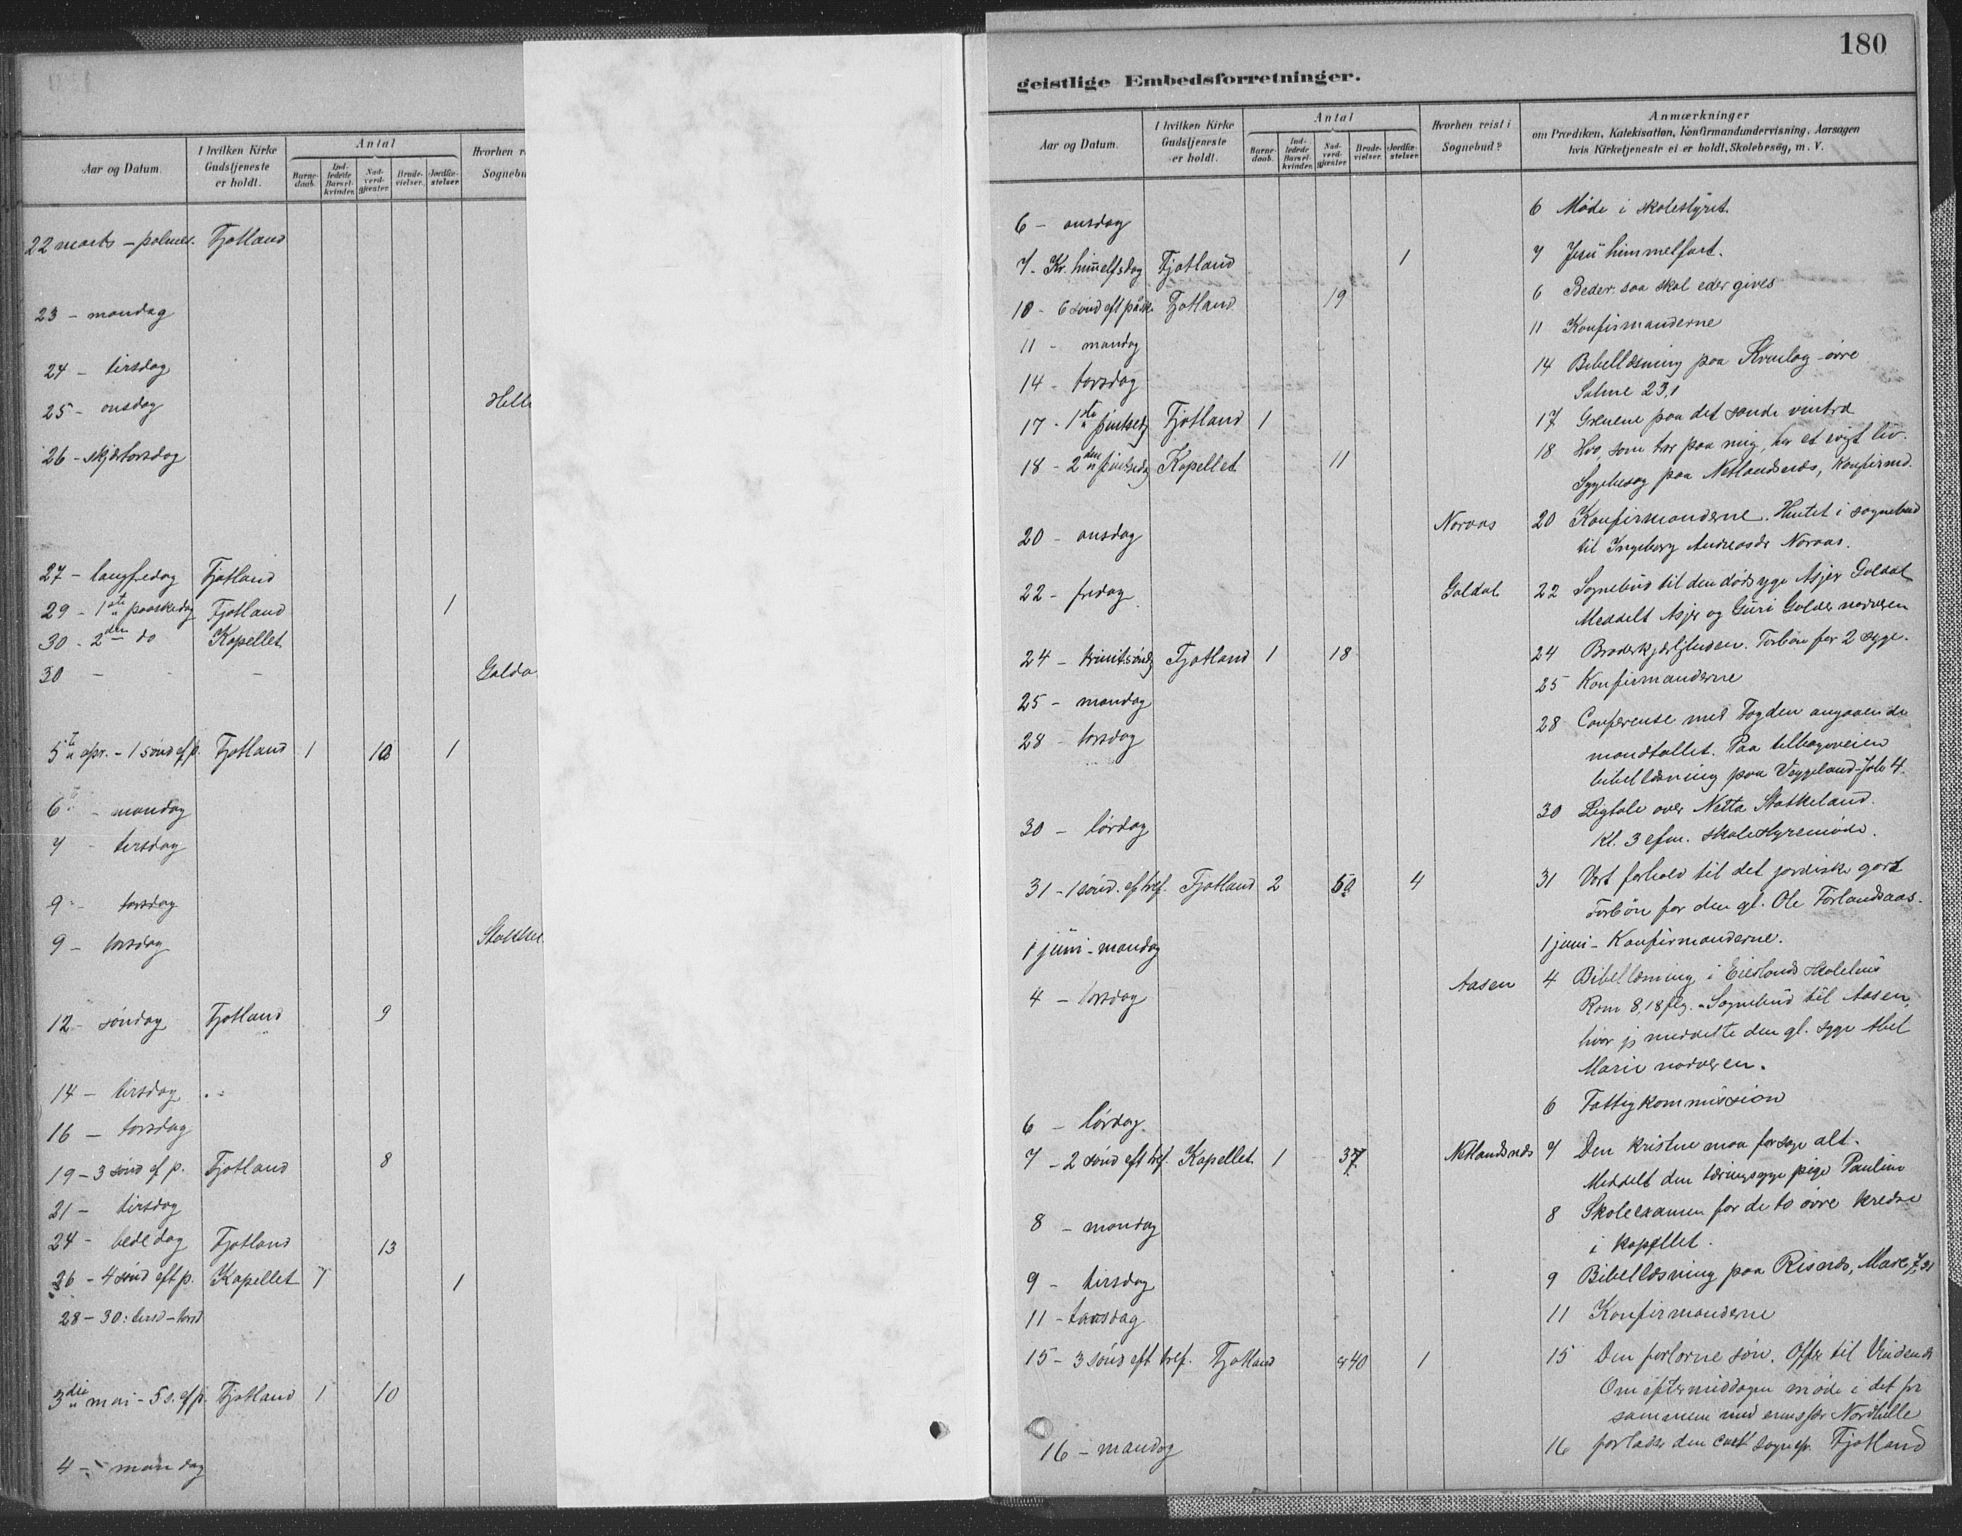 Aar og Datum. I hvilken Kirke Gudstjeneste er holdt. Antal Hvorhen re
Barne-daab. Ind-ledede Barsel-kvinder. Nad-verd-gjester Brude-vielser. Jordfæ-stelser Sognebud
22 marts – palmes. Fjotland
23 – mandag
24 – tirsdag
25 – onsdag Hell
26 – skjærtorsdag
27 – langfredag Fjotland
29 – 1ste paaskedag Fjotland 1
30 – 2den do Kapellet
30 – - - Galda
5te apr. – 1 sönd ef p. Fjotland 1 10 1
6te – mandag
7 – tirsdag
9 – torsdag
9 – torsdag Stakkel
12 – söndag Fjotland 9
14 – tirsdag
16 – torsdag
19 – 3 sönd ef p. Fjotland 8
21 – tirsdag
24 – bededag Fjotland 13
26 – 4 sönd eft p. Kapellet 7 1
28 – 30: tirsd – torsd
3die mai – 5 s. ef p. Fjotland 1 10
4 – mandag
180
geistlige Embedsforretninger.
Aar og Datum. I hvilken Kirke Gudstjeneste er holdt. Antal Hvorhen reist i Sognebud? Anmærkninger
Barne-daab. Ind-ledede Barsel-kvinder. Nad-verd-gjester Brude-vielser. Jordfæ-stelser om Prædiken, Katekisation, Konfirmandundervisning, Aarsagen
hvis Kirketjeneste ei er holdt, Skolebesøg, m. V.
6 – onsdag 6 Møde i skolestyret.
7 – Kr. himmelfsdag Fjotland 1 7 Jesu himmelfart.
10 – 6 sönd eft påsk. Fjotland 19 6 Beder, saa skal eder gives
11 – mandag 11 Konfirmanderne
14 – torsdag 14 Bibellæsning paa Kvinlog – övre
Salme 23,1
17 – 1ste pintsedg Fjotland 1 17 Grenene paa det sande vintræ
18 – 2den pintsedg Kapellet 11 18 Hvo, som tror paa mig, har et evigt liv.
Sygebesøg paa Netlandsnes, Konfirmd.
20 – onsdag Noraas 20 Konfirmanderne. Hentet i sognebud
til Ingeborg Andreasdr Noraas.
22 – fredag Galdal 22 Sognebud til den dödssyge Asjer Galdal
Meddelt Asjer og Guri Galdal nadveren
24 – trinit.söndg Fjotland 1 18 24 Broderkjærligheden. Forbön for 2 syge.
25 – mandag 25 Konfirmanderne
28 – torsdag 28 Conferense med Fogden angaaende
mandtallet. Paa tilbageveien
bibellæsning paa Veggeland – Joh 4.
30 – lördag 30 Ligtale over Netta Stakkeland.
Kl. 3 efm. skolestyremöde.
31 – 1 sönd. ef tref. Fjotland 2 50 4 31 Vort forhold til det jordiske gods
Forbön for den gl. Ole Förlandsaas.
1 juni – mandag 1 juni – Konfirmanderne.
4 – torsdag Aasen 4 Bibellæsning i Eieslands skolehus
Rom 8,18 flg. – Sognebud til Aasen,
hvor jg meddelte den gl. syge Abel
Marie nadveren.
6 – lördag 6 Fattigkommission
7 – 2 sönd eft tref. Kapellet 1 37 Netlandsnes 7 Den kristne maa forsage alt.
Meddelt den tæringssyge pige Pauline
8 – mandag 8 Skoleexamen for de to övre kredse
i kapellet.
9 – tirsdag 9 Bibellæsning paa Risnes, Marc 7,31
11 – torsdag 11 Konfirmanderne
15 – 3 sönd eft tref. Fjotland 40 1 15 Den forlorne sön. Offer til
Om eftermiddagen möde i det for
sammene med Nordhelle
16 – mandag 16 forlader den sognepr. Fjotland